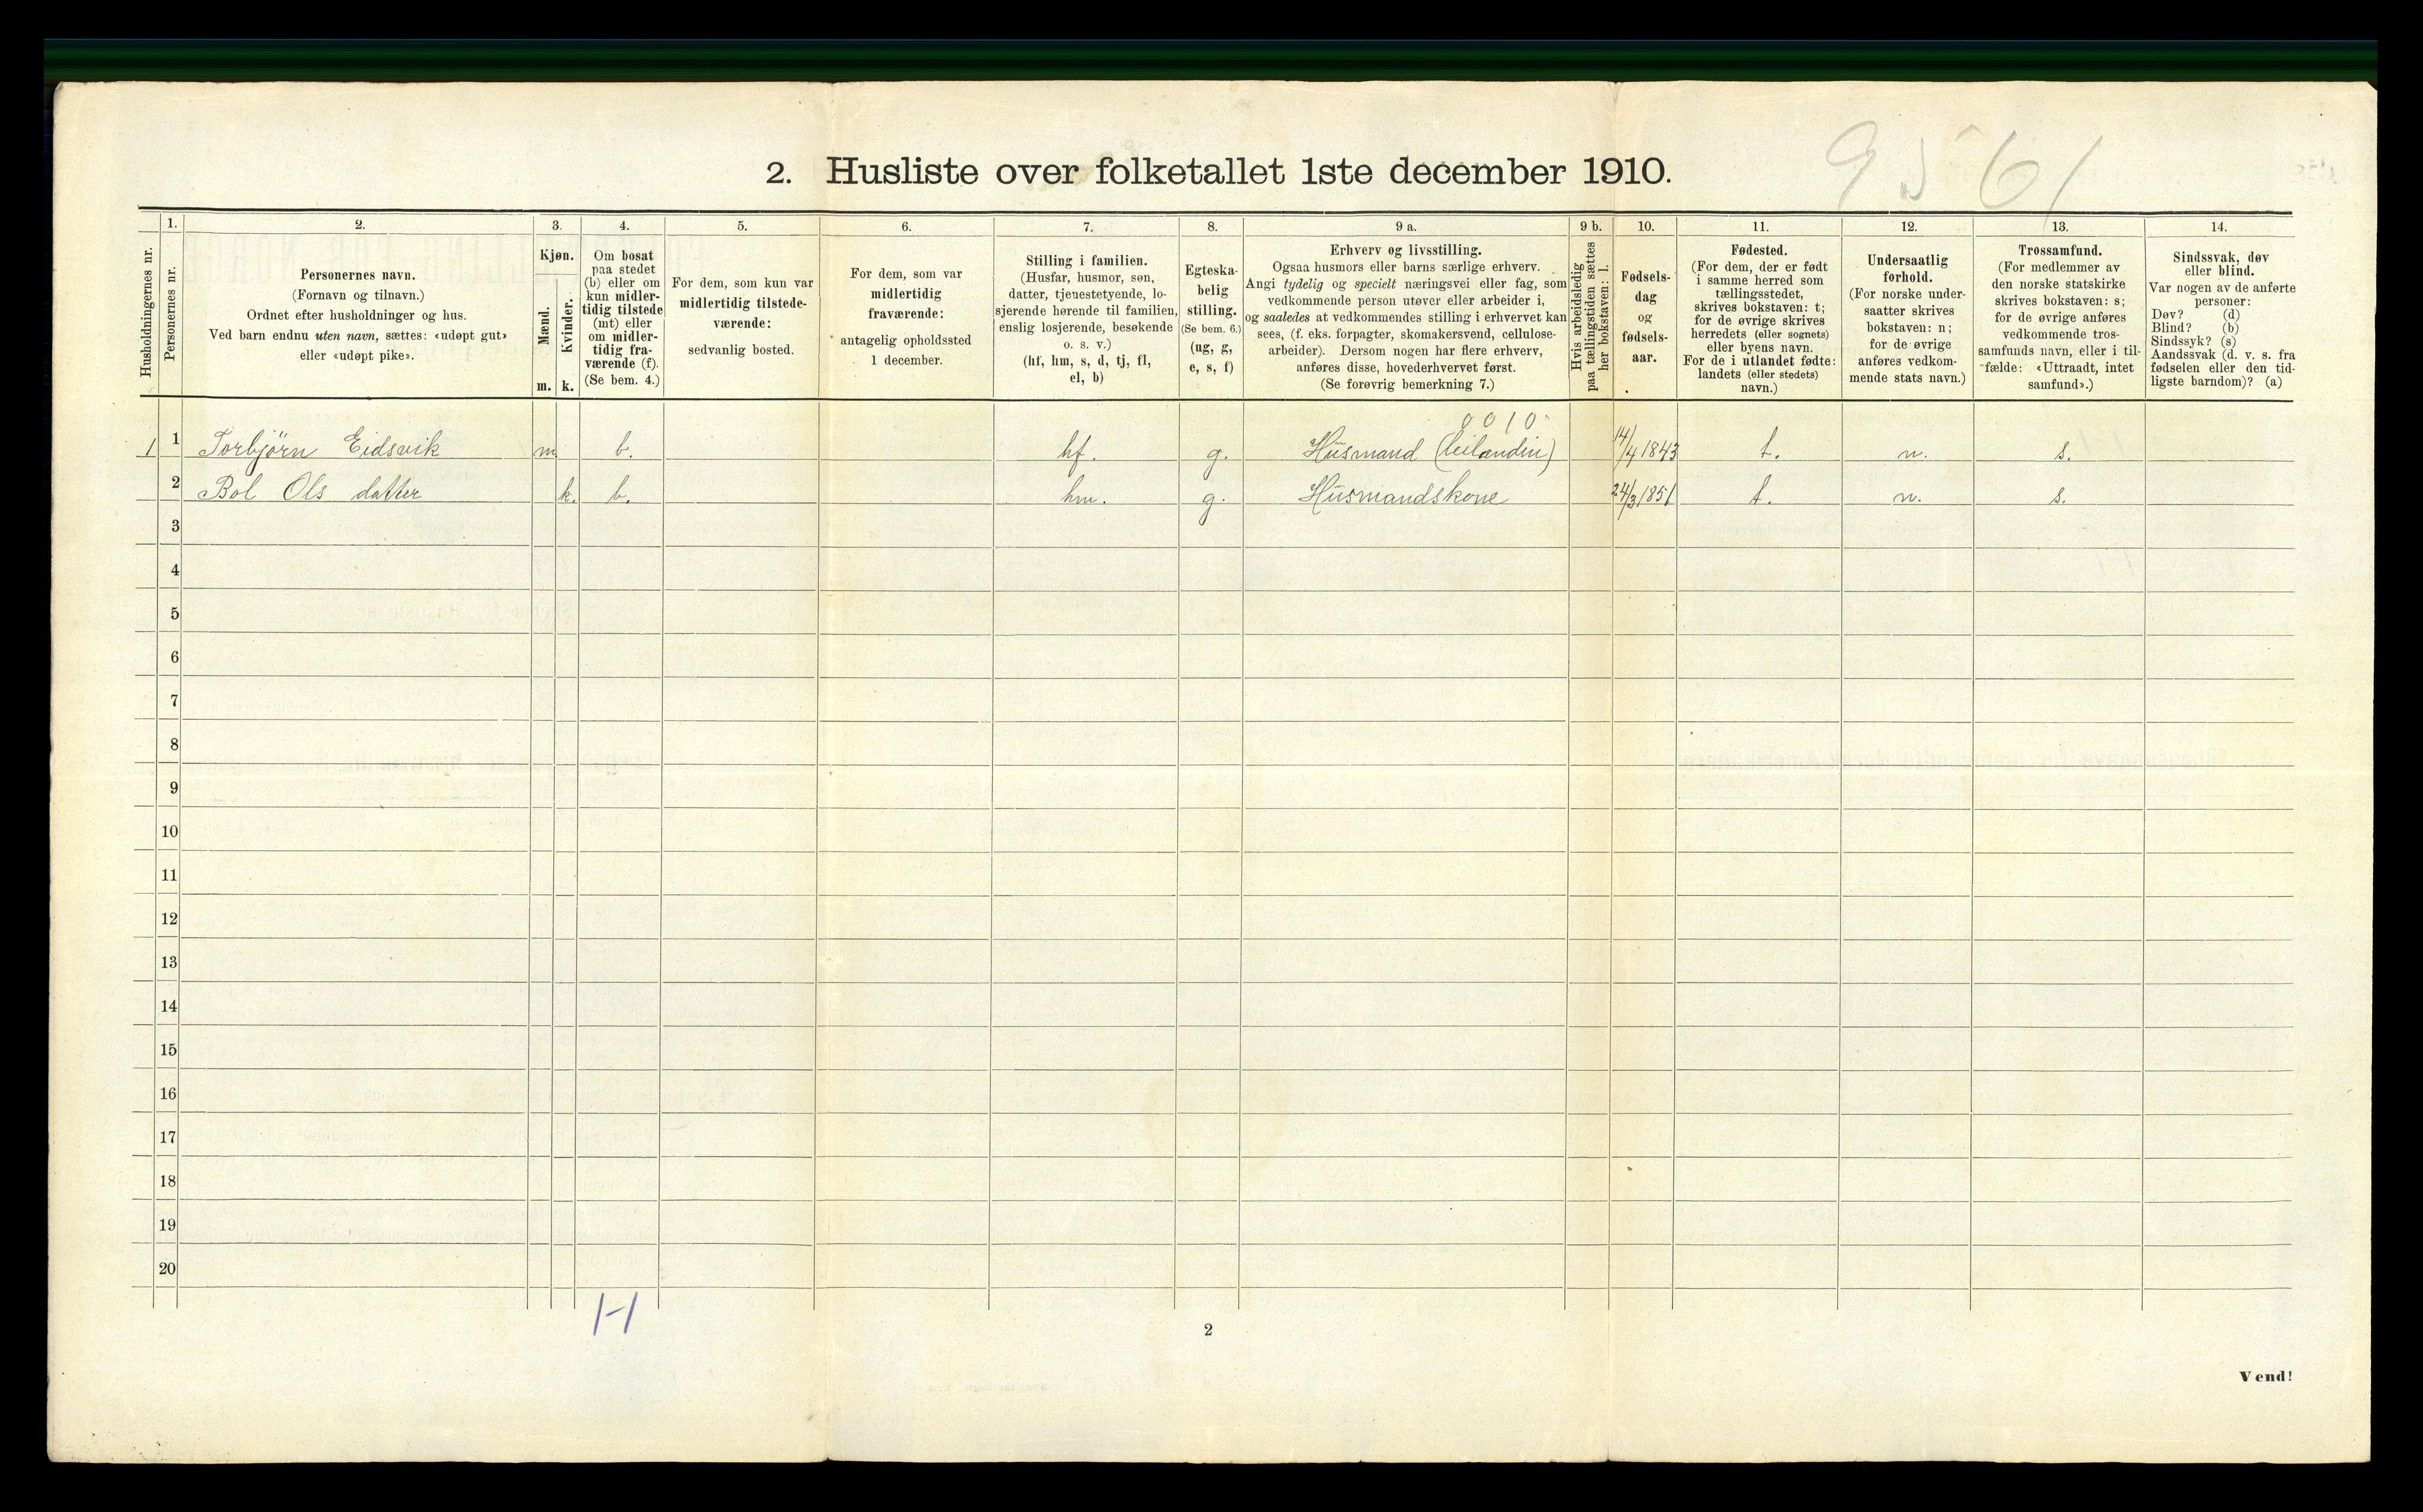 9561
2. Husliste over folketallet 1ste december 1910.
Husholdningernes nr.
1.
Personernes nr.
2.
Personernes navn.
(Fornavn og tilnavn.)
Ordnet efter husholdninger og hus.
Ved barn endnu uten navn, sættes: «udøpt gut»
eller «udøpt pike».
3.
Kjøn.
Mænd.
Kvinder.
m. k.
4.
Om bosat
paa stedet
(b) eller om
kun midler-
tidig tilstede
(mt) eller
om midler-
tidig fra-
værende (f).
(Se bem. 4.)
5.
For dem, som kun var
midlertidig tilstede-
værende:
sedvanlig bosted.
6.
For dem, som var
midlertidig
fraværende:
antagelig opholdssted
1 december.
7.
Stilling i familien.
(Husfar, husmor, søn,
datter, tjenestetyende, lo-
sjerende hørende til familien,
enslig losjerende, besøkende
o. s. v.)
(hf, hm, s, d, tj, fl,
el, b)
8.
Egteska-
belig
stilling.
(Se bem. 6.)
(ug, g,
e, s, f)
9 a.
Erhverv og livsstilling.
Ogsaa husmors eller barns særlige erhverv.
Angi tydelig og specielt næringsvei eller fag, som
vedkommende person utøver eller arbeider i,
og saaledes at vedkommendes stilling i erhvervet kan
sees, (f. eks. forpagter, skomakersvend, cellulose-
arbeider). Dersom nogen har flere erhverv,
anføres disse, hovederhvervet først.
(Se forøvrig bemerkning 7.)
9 b.
Hvis arbeidsledig
paa tællingstiden sættes
her bokstaven: l.
10.
Fødsels-
dag
og
fødsels-
aar.
11.
Fødested.
(For dem, der er født
i samme herred som
tællingsstedet,
skrives bokstaven: t;
for de øvrige skrives
herredets (eller sognets)
eller byens navn.
For de i utlandet fødte:
landets (eller stedets)
navn.)
12.
Undersaatlig
forhold.
(For norske under-
saatter skrives
bokstaven: n;
for de øvrige
anføres vedkom-
mende stats navn.)
13.
Trossamfund.
(For medlemmer av
den norske statskirke
skrives bokstaven: s;
for de øvrige anføres
vedkommende tros-
samfunds navn, eller i til-
fælde: «Uttraadt, intet
samfund».)
14.
Sindssvak, døv
eller blind.
Var nogen av de anførte
personer:
Døv? (d)
Blind? (b)
Sindssyk? (s)
Aandssvak (d. v. s. fra
fødselen eller den tid-
ligste barndom)? (a)
0010
1 1 Torbjörn Eidsvik m b. hf. g. Husmand (leilandin) 14/4 1843 t. n. s.
2 Bol Ols datter k. b. hm. g. Husmandskone 24/3 1851 t. n. s.
3
4
5
6
7
8
9
10
11
12
13
14
15
16
17
18
19
20
1-1
2
Vend!